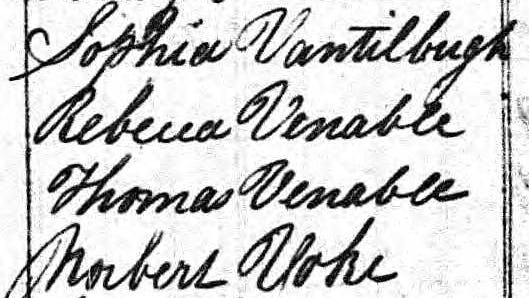 Sophia Vantilbugh
Rebecca Venable
Thomas Venable
Norbert Voke